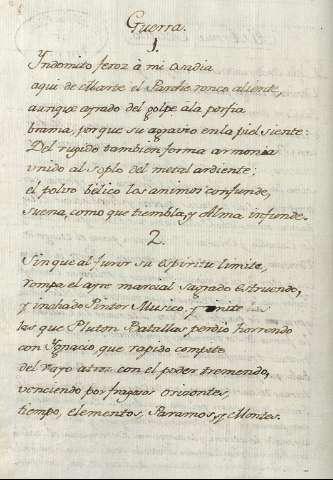 Guerra.
1.
Yndomito feroz à mi osadia
aqui de Marte el Parche ronco aliente,
aunque ayrado del golpe à la porfia
brama, porque su agravio en la piel siente:
Del rugido tambien forma armonia
unido al soplo del metal ardiente;
el polvo belico los animos confunde,
suena, como que tiembla, y Alma infunde.
2.
Sin que al furor su espiritu limite,
rompa el ayre marcial sagrado estruendo,
y inchado Pintor Musico, y imite
las que Pluton Batallas perdió horrendo
con Ygnacio, que rapido compite
del Rayo atroz con el poder tremendo,
venciendo por fragosos orizontes,
tiempo, elementos, Paramos, y Montes.